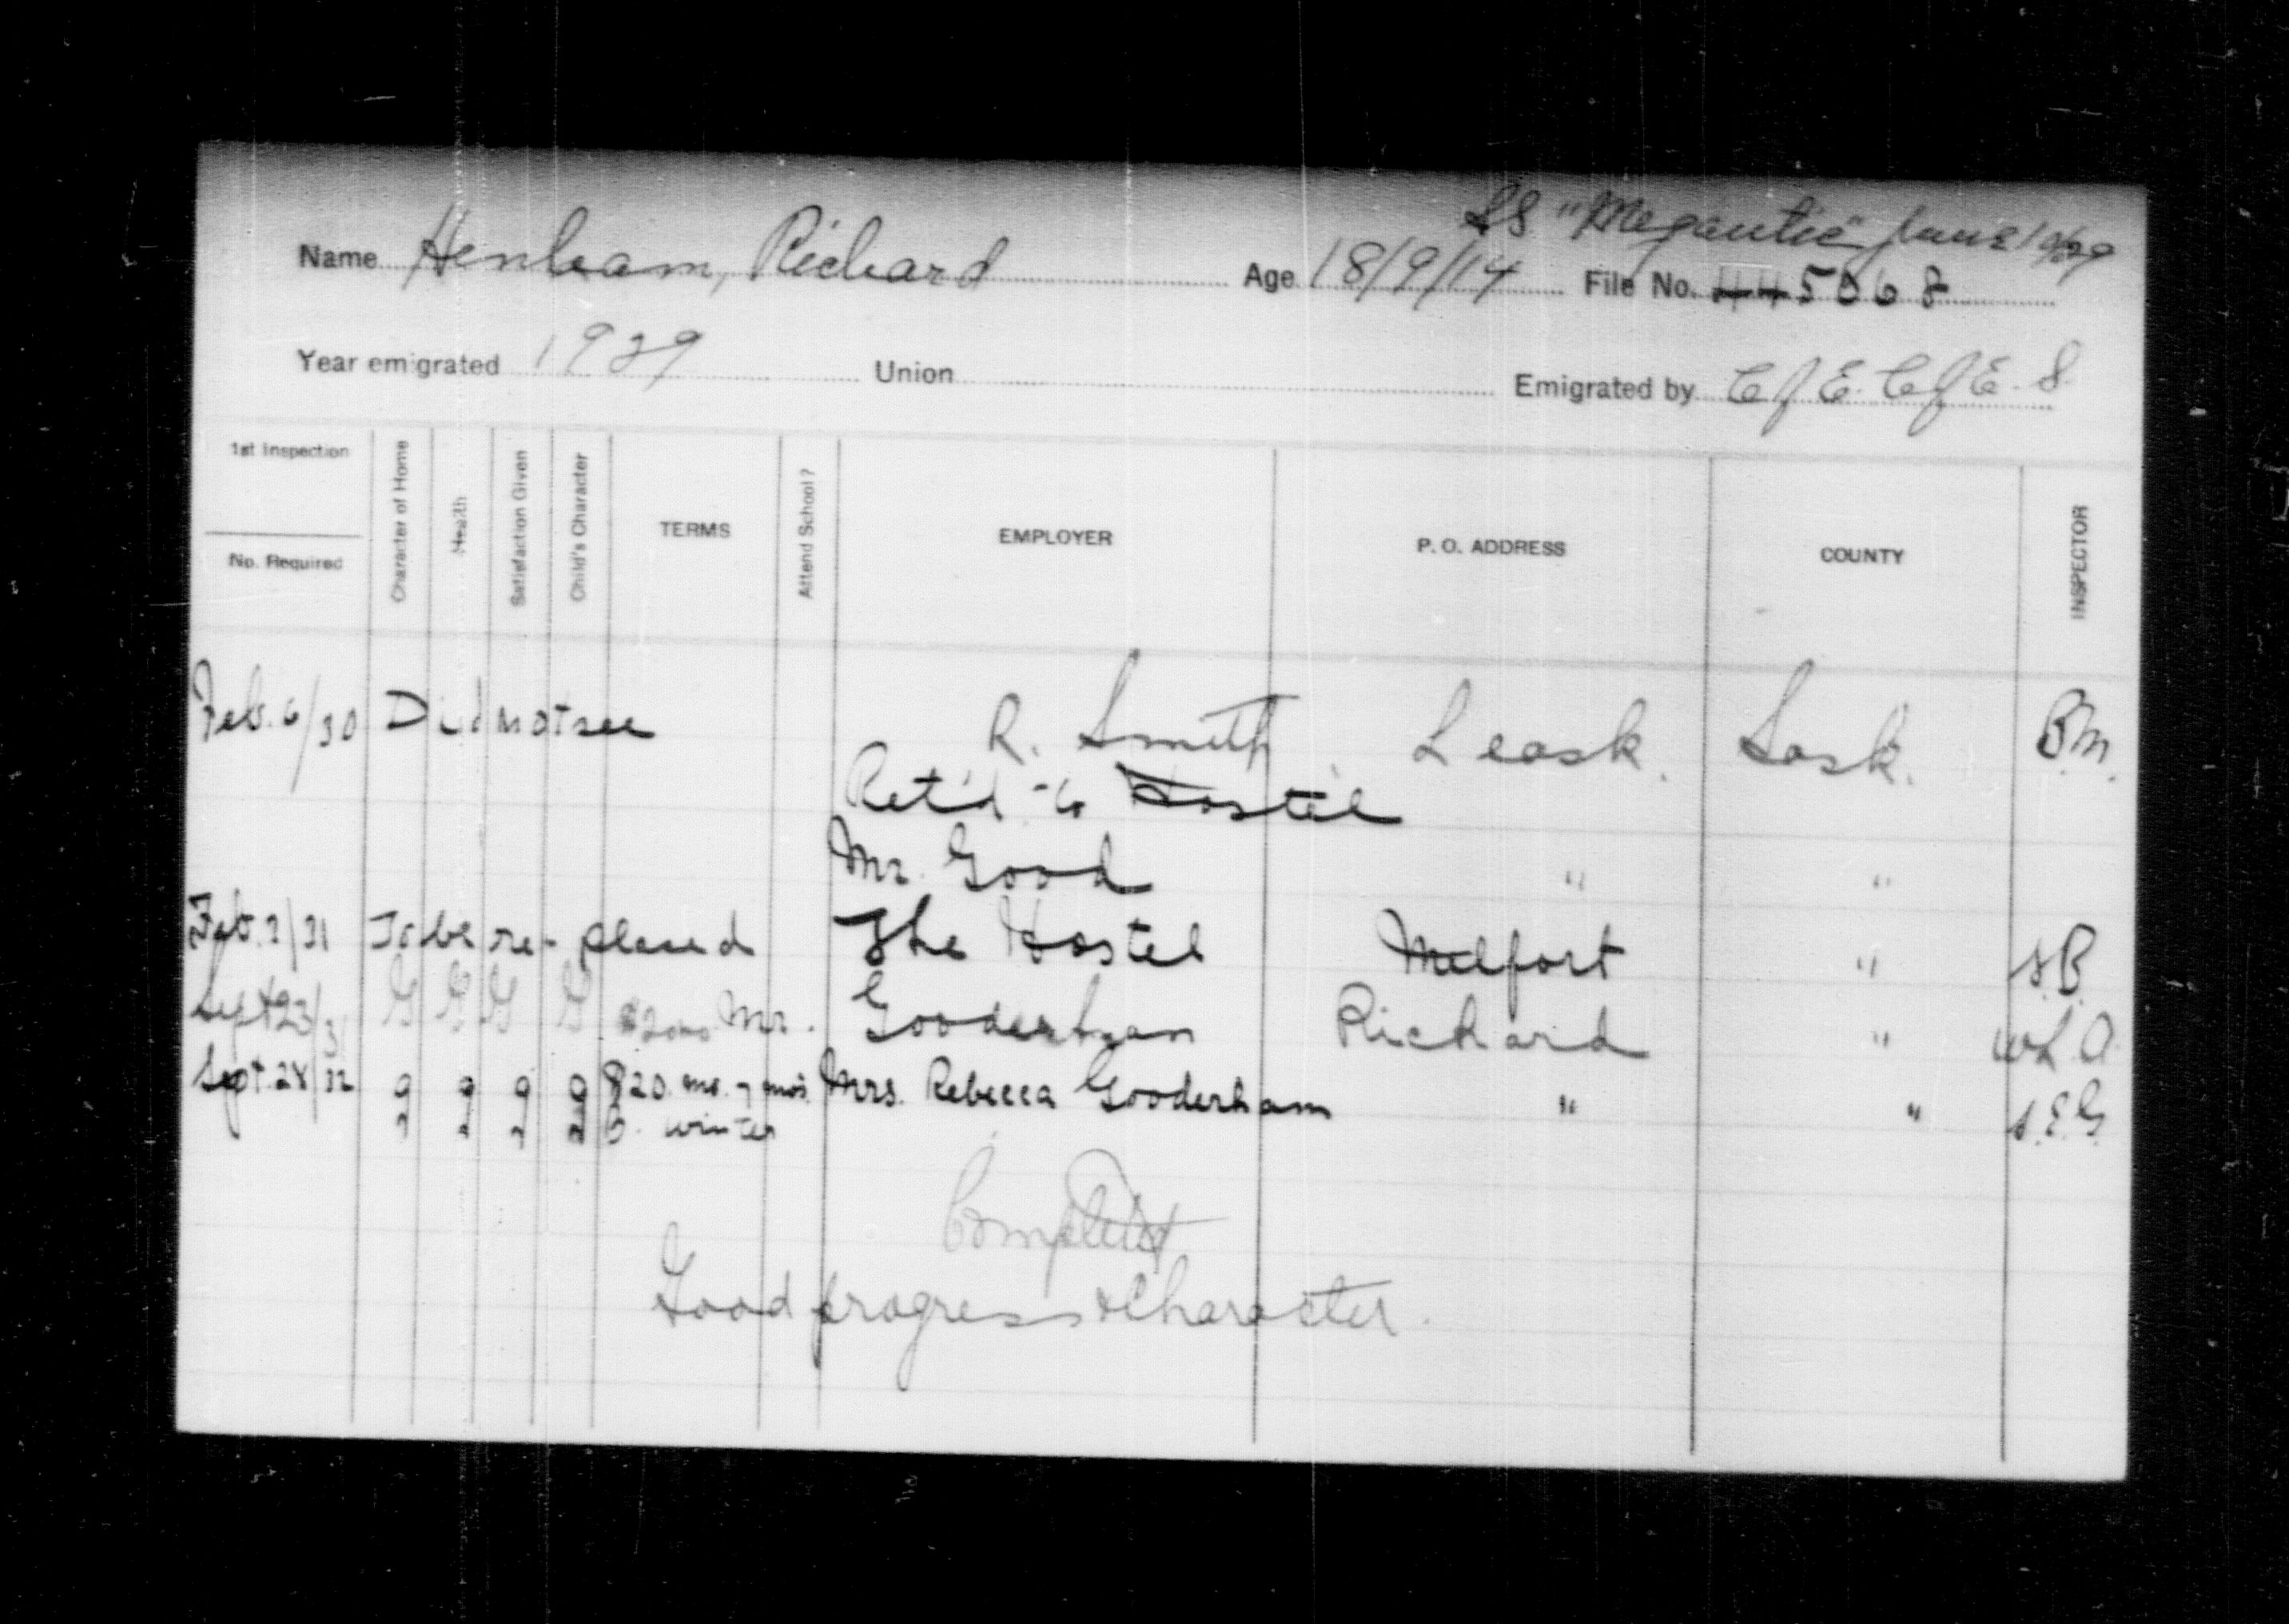 SS "Megantic" June 1929
Name Henham, Richard Age 18/9/14 File No. 445068
Year emigrated 1929 Union Emigrated by
1st Inspection
No. Required
Character of Home
Health
Satisfaction Given
Child's Character
TERMS
Attend School?
EMPLOYER
P. O. ADDRESS
COUNTY
INSPECTOR
Feb. 6/30 Did not see R. Smith Leask. Sask. B.M.
Ret'd to Hostel
Mr. Good " "
Feb. 2/31 To be re-placed The Hostel Melfort " S.B.
Sept 23/31 G G G G $2000 Mr. Gooderham Richard " W L A
Sept. 28/32 g g g g $20. mo. 7 mos. Mrs. Rebecca Gooderham " " S.E.G.
5. winter
Complete
Good progress & Character.